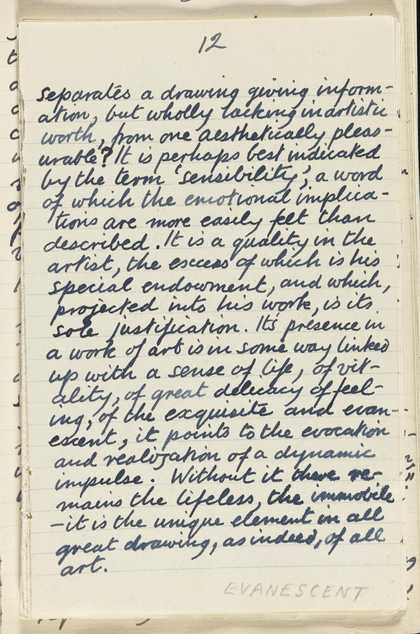 12
separates a drawing giving inform-
ation, but wholly lacking in artistic
worth, from one aesthetically pleas-
urable? It is perhaps best indicated
by the term 'sensibility', a word
of which the emotional implica-
tions are more easily felt than
described. It is a quality in the
artist, the excess of which is his
special endowment, and which,
projected into his work, is its
sole justification. Its presence in
a work of art is in some way linked
up with a sense of life, of vit-
ality, of great delicacy of feel-
ing, of the exquisite and evan-
escent, it points to the evocation
and realization of a dynamic
impulse. Without it there re-
mains the lifeless, the immobile
- it is the unique element in all
great drawing, as indeed, of all
art.
EVANESCENT